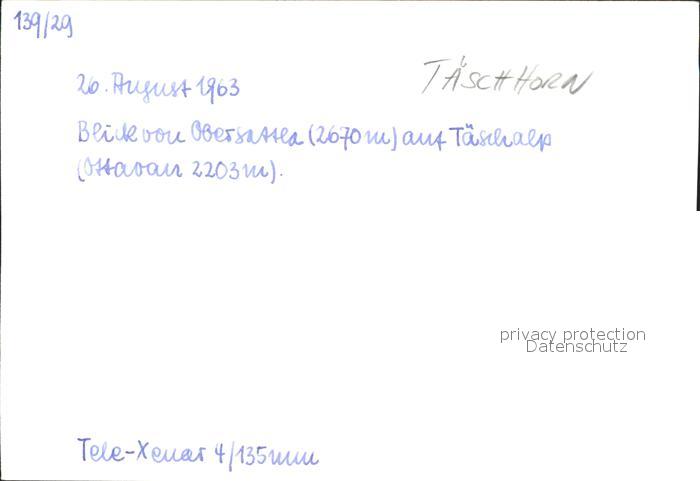 139/29
26. August 1963
TÄSCHHORN
Blick von Obersattla (2670m) auf Täschalp
(Ottavan 2203m).
privacy protection
Datenschutz
Tele-Xenar 4/135mm